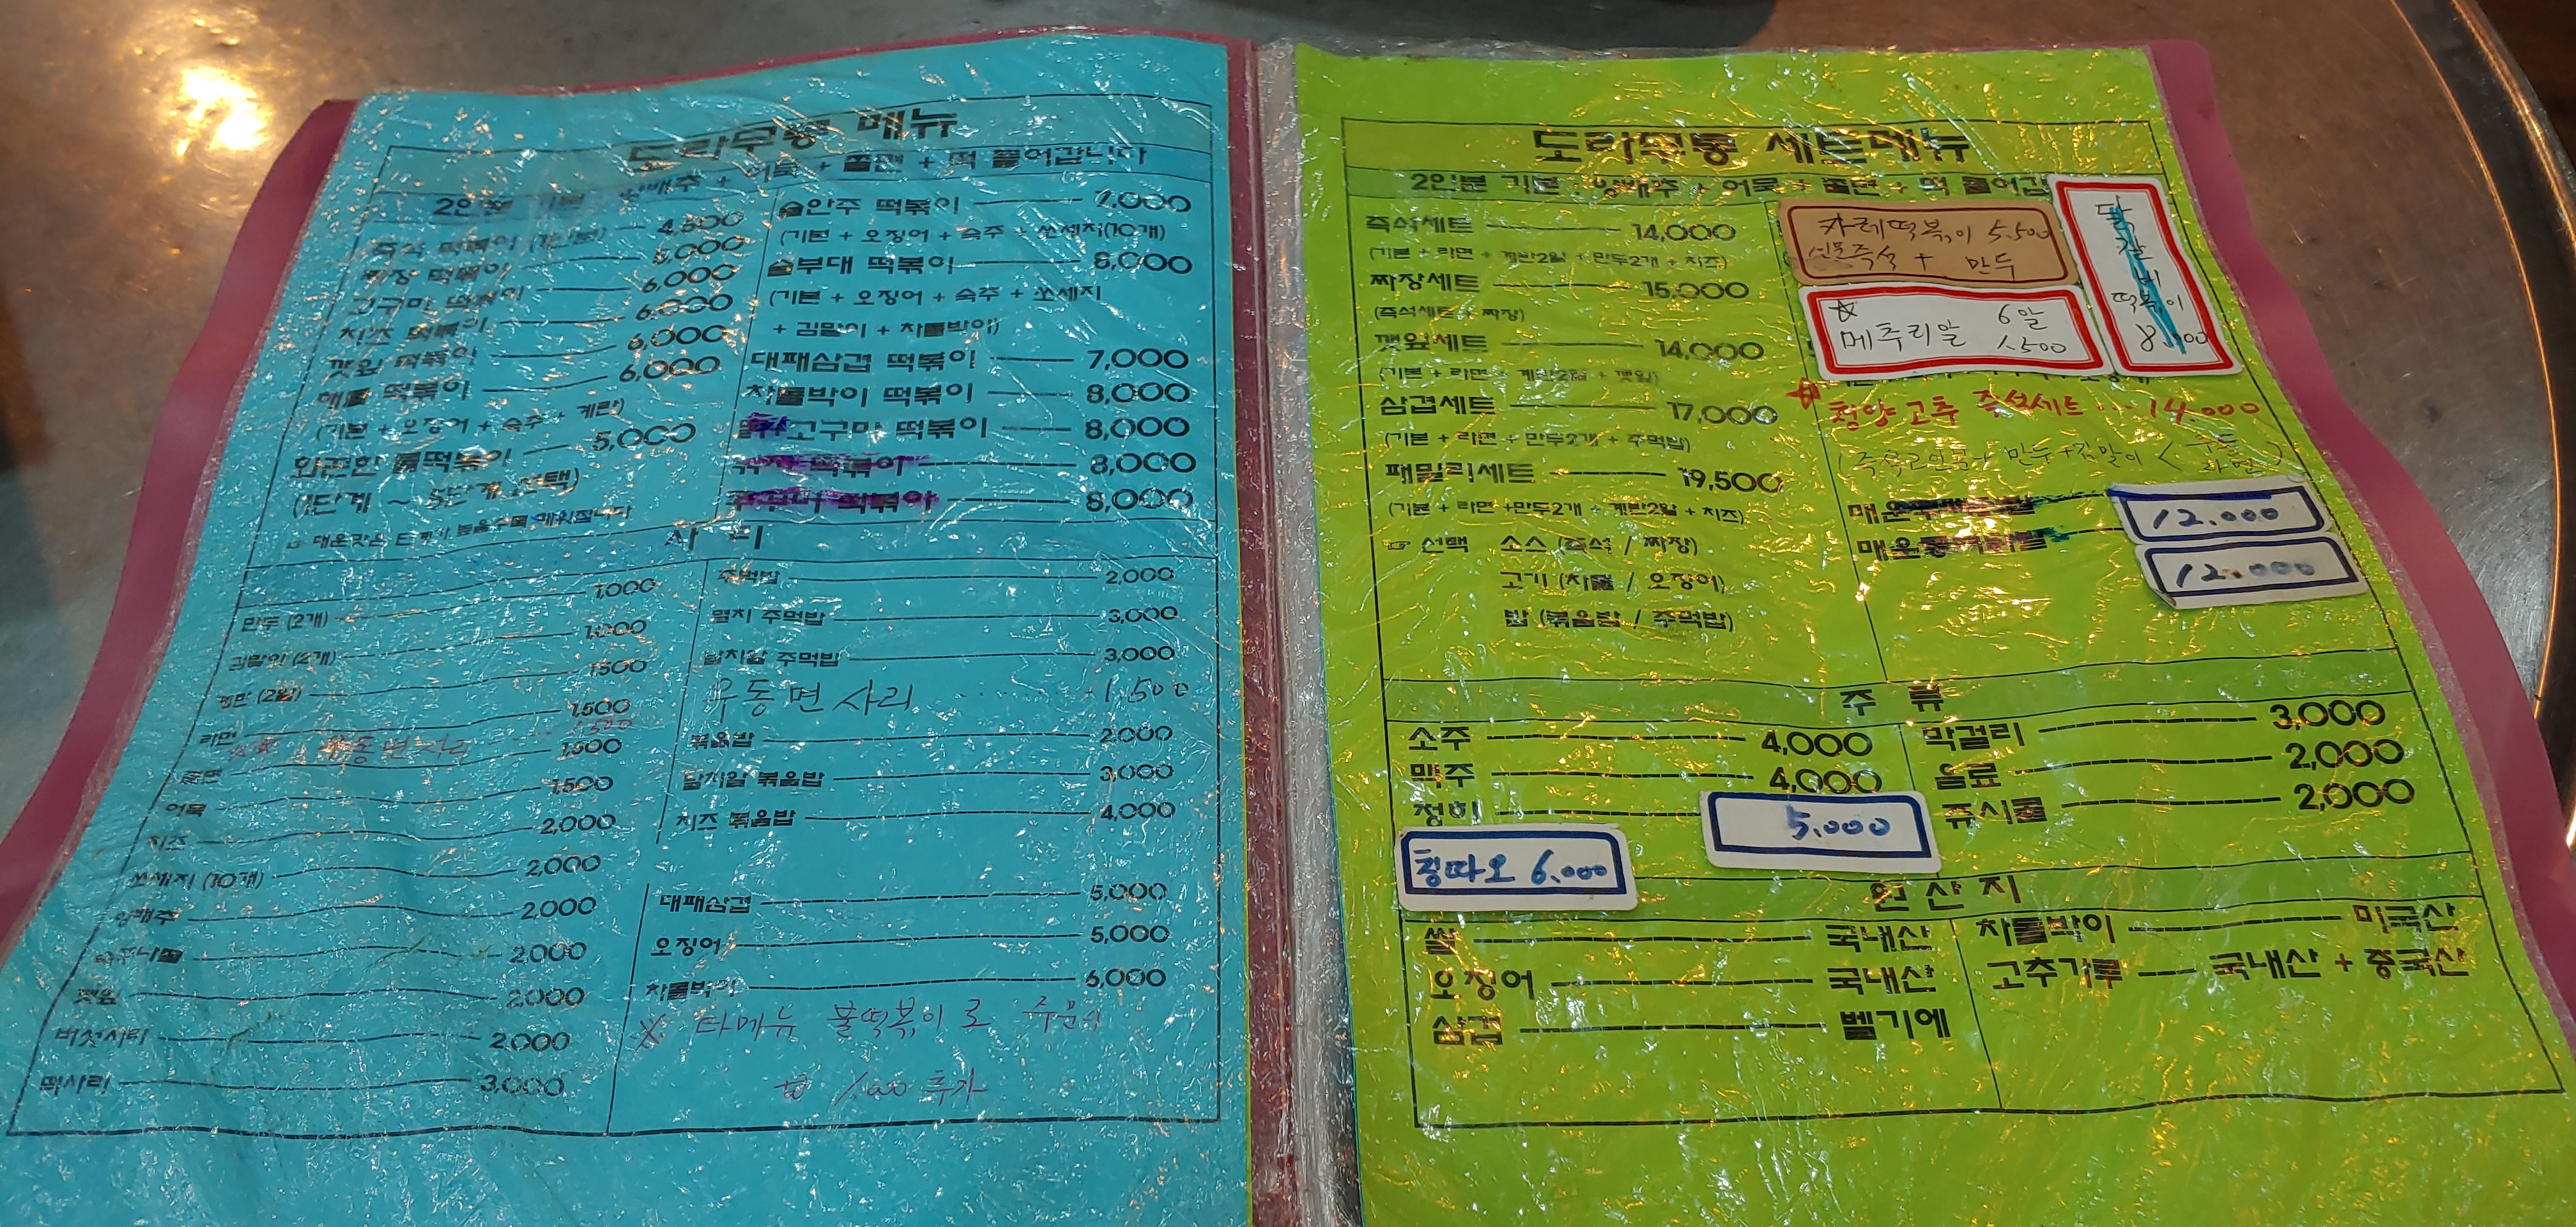 도라무통 메뉴
2인분 기본 : 양배추 + 어묵 + 쫄면 + 떡 들어갑니다
즉석 떡볶이 (1인분) 4,500
짜장 떡볶이 5,000
고구마 떡볶이 6,000
치즈 떡볶이 6,000
깻잎 떡볶이 6,000
해물 떡볶이 6,000
(기본 + 오징어 + 숙주 + 계란)
화끈한 불떡볶이 5,000
(1단계 ~ 5단계 선택)
☞ 매운맛은 단계가 높을수록 매워집니다
술안주 떡볶이 7,000
(기본 + 오징어 + 숙주 + 쏘세지(10개)
술부대 떡볶이 8,000
(기본 + 오징어 + 숙주 + 쏘세지
+ 김말이 + 차돌박이)
대패삼겹 떡볶이 7,000
차돌박이 떡볶이 8,000
고구마 떡볶이 8,000
떡볶이 8,000
떡볶이 8,000
사 리
만두 (2개) 1,000
김말이 (2개) 1,000
계란 (2알) 1,500
라면 1,500
우동면사리 1,500
쫄면 1,500
어묵 1,500
치즈 2,000
쏘세지 (10개) 2,000
양배추 2,000
숙주나물 2,000
깻잎 2,000
버섯사리 2,000
떡사리 3,000
주먹밥 2,000
멸치 주먹밥 3,000
날치알 주먹밥 3,000
우동면 사리 1,500
볶음밥 2,000
날치알 볶음밥 3,000
치즈 볶음밥 4,000
대패삼겹 5,000
오징어 5,000
차돌박이 6,000
※ 타메뉴 불떡볶이로 주문시
1,000 추가
도라무통 세트메뉴
2인분 기본 : 양배추 + 어묵 + 쫄면 + 떡 들어갑
즉석세트 14,000
(기본 + 라면 + 계란2알 + 만두2개 + 치즈)
짜장세트 15,000
(즉석세트 + 짜장)
깻잎세트 14,000
(기본 + 라면 + 계란2알 + 깻잎)
삼겹세트 17,000
(기본 + 라면 + 만두2개 + 주먹밥)
패밀리세트 19,500
(기본 + 라면 +만두2개 + 계란2알 + 치즈)
☞ 선택 소스 (즉석 / 짜장)
고기 (차돌 / 오징어)
밥 (볶음밥 / 주먹밥)
카레떡볶이 5,500
인분즉석 + 만두
☆
메추리알 6알 1,500
닭갈비 떡볶이 8,000
☆ 청양고추 즉석세트 14.000
(즉석2인분+ 만두+김말이 < 우동 라면 )
매운 12.000
매운 12.000
주 류
소주 4,000
맥주 4,000
청하 5.000
칭따오 6.000
막걸리 3,000
음료 2,000
쥬시쿨 2,000
원 산 지
쌀 국내산
오징어 국내산
삼겹 벨기에
차돌박이 미국산
고추가루 국내산 + 중국산